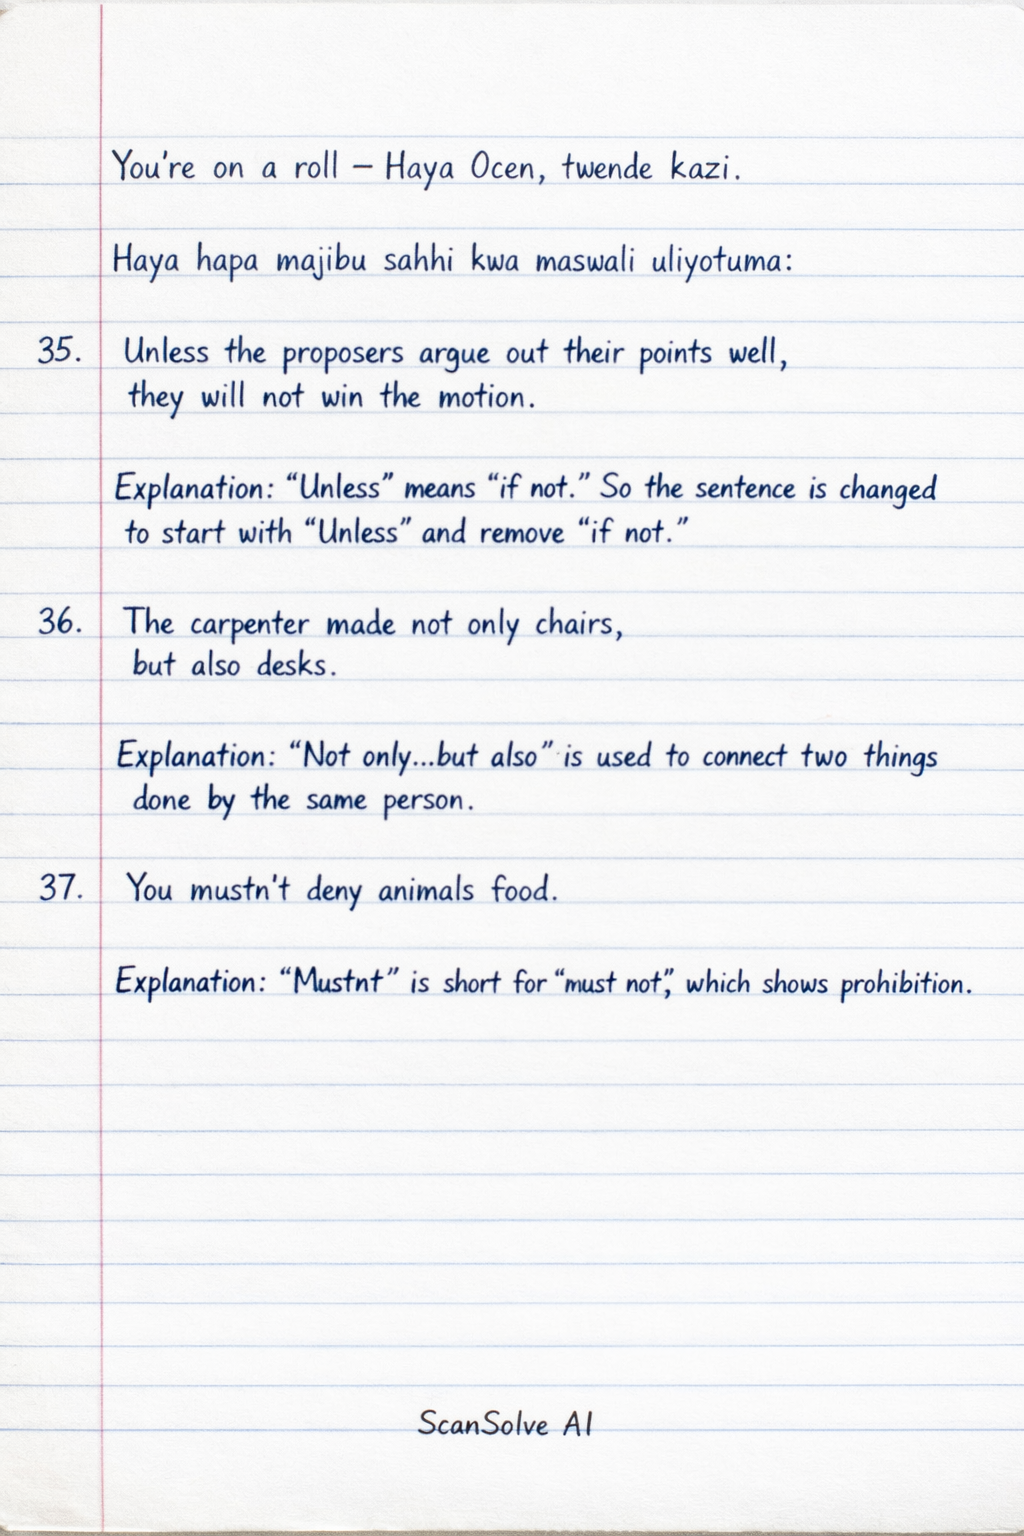 You're on a roll – Haya Ocen, twende kazi.
Haya hapa majibu sahhi kwa maswali uliyotuma:
35. Unless the proposers argue out their points well,
they will not win the motion.
Explanation: “Unless” means “if not.” So the sentence is changed
to start with “Unless” and remove “if not.”
36. The carpenter made not only chairs,
but also desks.
Explanation: “Not only...but also” is used to connect two things
done by the same person.
37. You mustn't deny animals food.
Explanation: “Mustnt” is short for “must not”, which shows prohibition.
ScanSolve AI